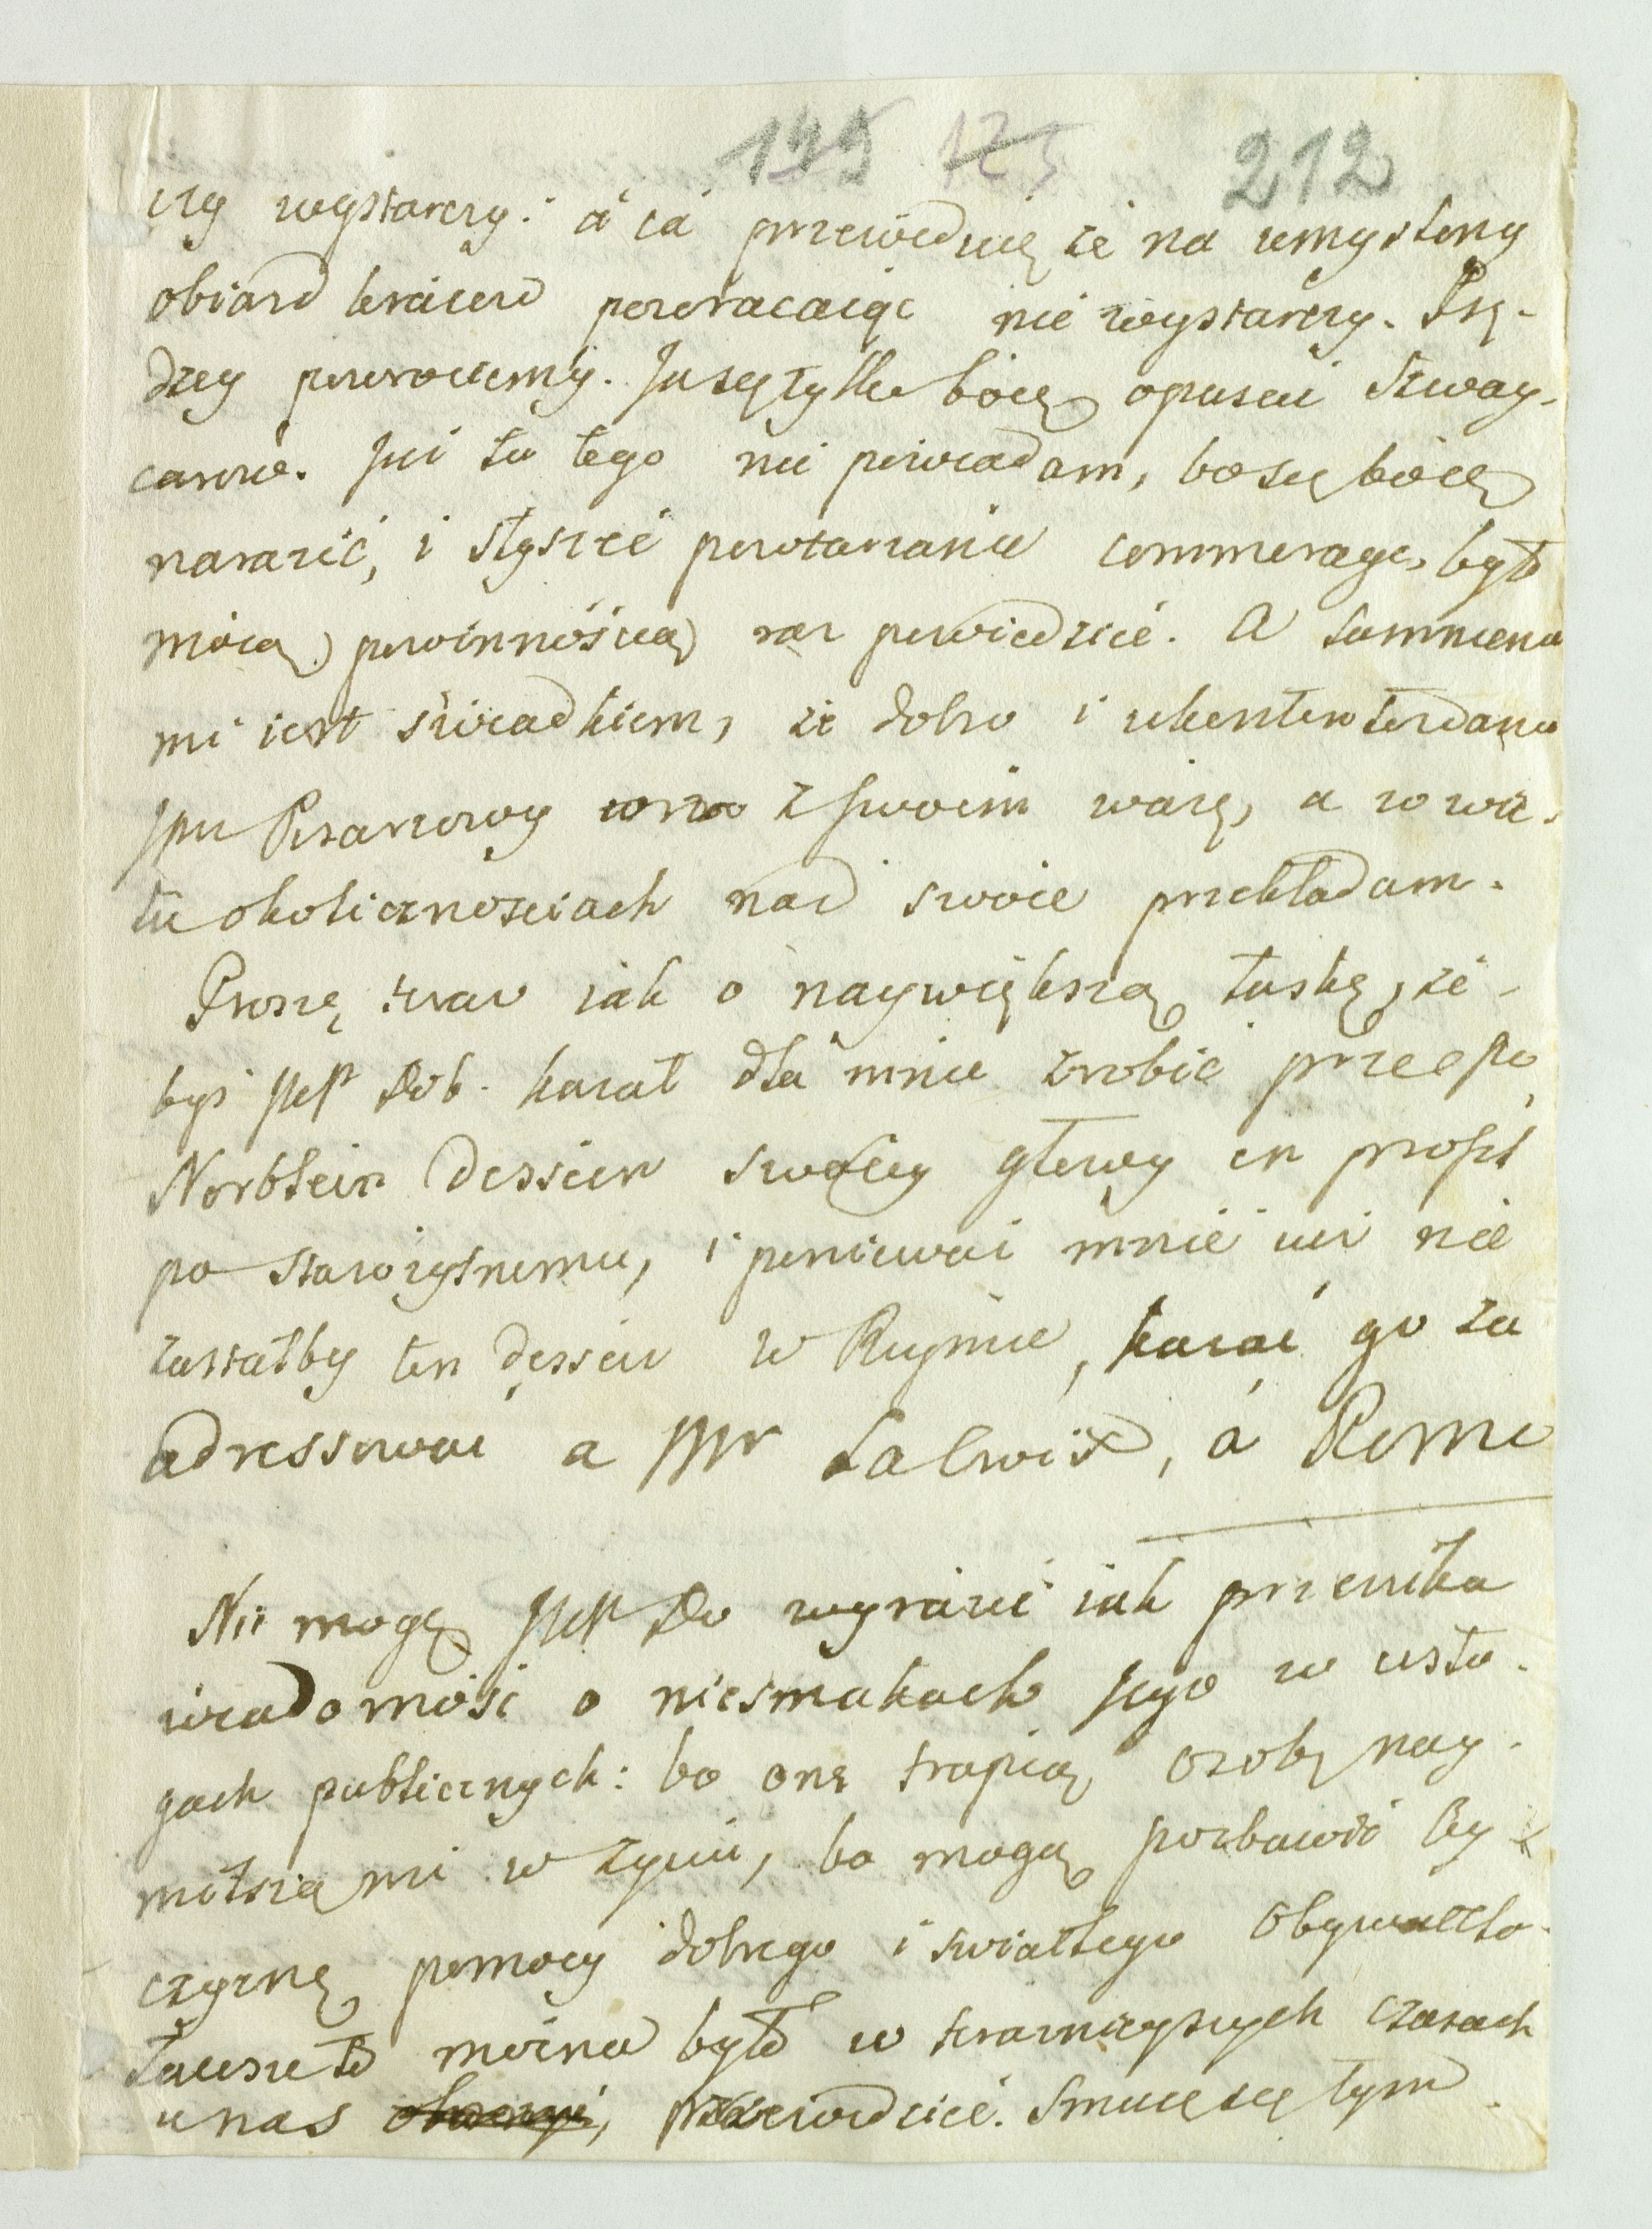 199 125 212
czy wystarczy: á iá przewiduię że na umyślony
obiazd kraiem powracaiąc nie wystarczy. Prę-
dzey powrocemy. Ja się tylko boię opuscic Szway-
carow. Już tu tego nie powiadam, bo się boię
narazić, i słyszeć powtarzanie commerage, było
moią powinnością raz powiedzieć. A sumnienie
mi iest świadkiem, że dobro i ukontentowanie
Jpu Pisarzowy z swoim ważę, a w wie-
lu okolicznosciach nad swoie przekładam.
Proszę teraz iak o naywiększą łaskę, że-
byś JWP Dob. kazał dla mnie zrobić przez Po
Norblein dessein swoiey głowy en profil
po starożytnemu, i ponieważ mnie iuż nie
zastałby ten dessein w Rzymie, kazać go za
adressować a Mr LaCroix, á Rome
Nie mogę JWP Do wyrazić iak przenika
wiadomość o niesmakach Jego w usłu-
gach publicznych: bo one trapią osobę nay-
milszą mi w życiu, bo mogą pozbawić Oy
czyznę pomocy dobrego i swiatłego Obywatela
Zawsze to można było w teraznieyszych czasach
u nas przewidzieć. Smucę się tym